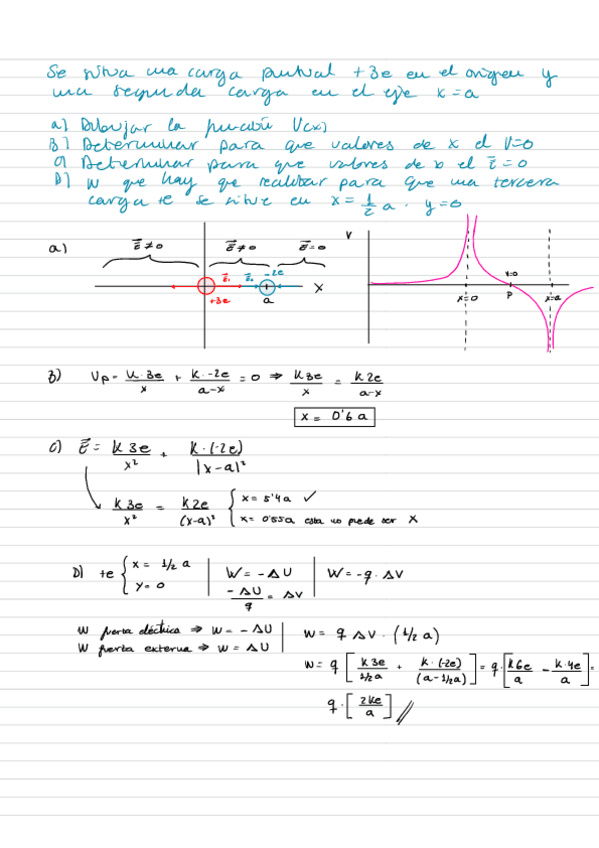 Se situa una carga puntual +3e en el origen y
una segunda carga en el eje x=a
a) Dibujar la función V(x)
B) Determinar para que valores de x el V=0
c) Determinar para que valores de x el E⃗=0
D) W que hay que realizar para que una tercera
carga +e se situe en x = 1/2 a · y=0
a)
E⃗ ≠ 0
E⃗ ≠ 0
E⃗ = 0
E⃗₁
E⃗₂
-2e
+3e
a
x
V
V=0
x=0
P
x=a
b) Vp = k·3e/x + k·-2e/a-x = 0 ⇒ k3e/x = k2e/a-x
x = 0'6a
c) E⃗ = k3e/x² + k·(-2e)/|x-a|²
k3e/x² = k2e/(x-a)² { x = 5'4a ✓
x = 0'55a esta no puede ser X
D) +e { x = 1/2 a
y = 0
W = -ΔU
-ΔU/q = ΔV
W = -q·ΔV
W fuerza eléctrica ⇒ W = -ΔU
W fuerza externa ⇒ W = ΔU
W = q ΔV · (1/2 a)
W = q [k3e/1/2a + k·(-2e)/(a-1/2a)] = q·[k6e/a - k·4e/a] =
q·[2ke/a] //